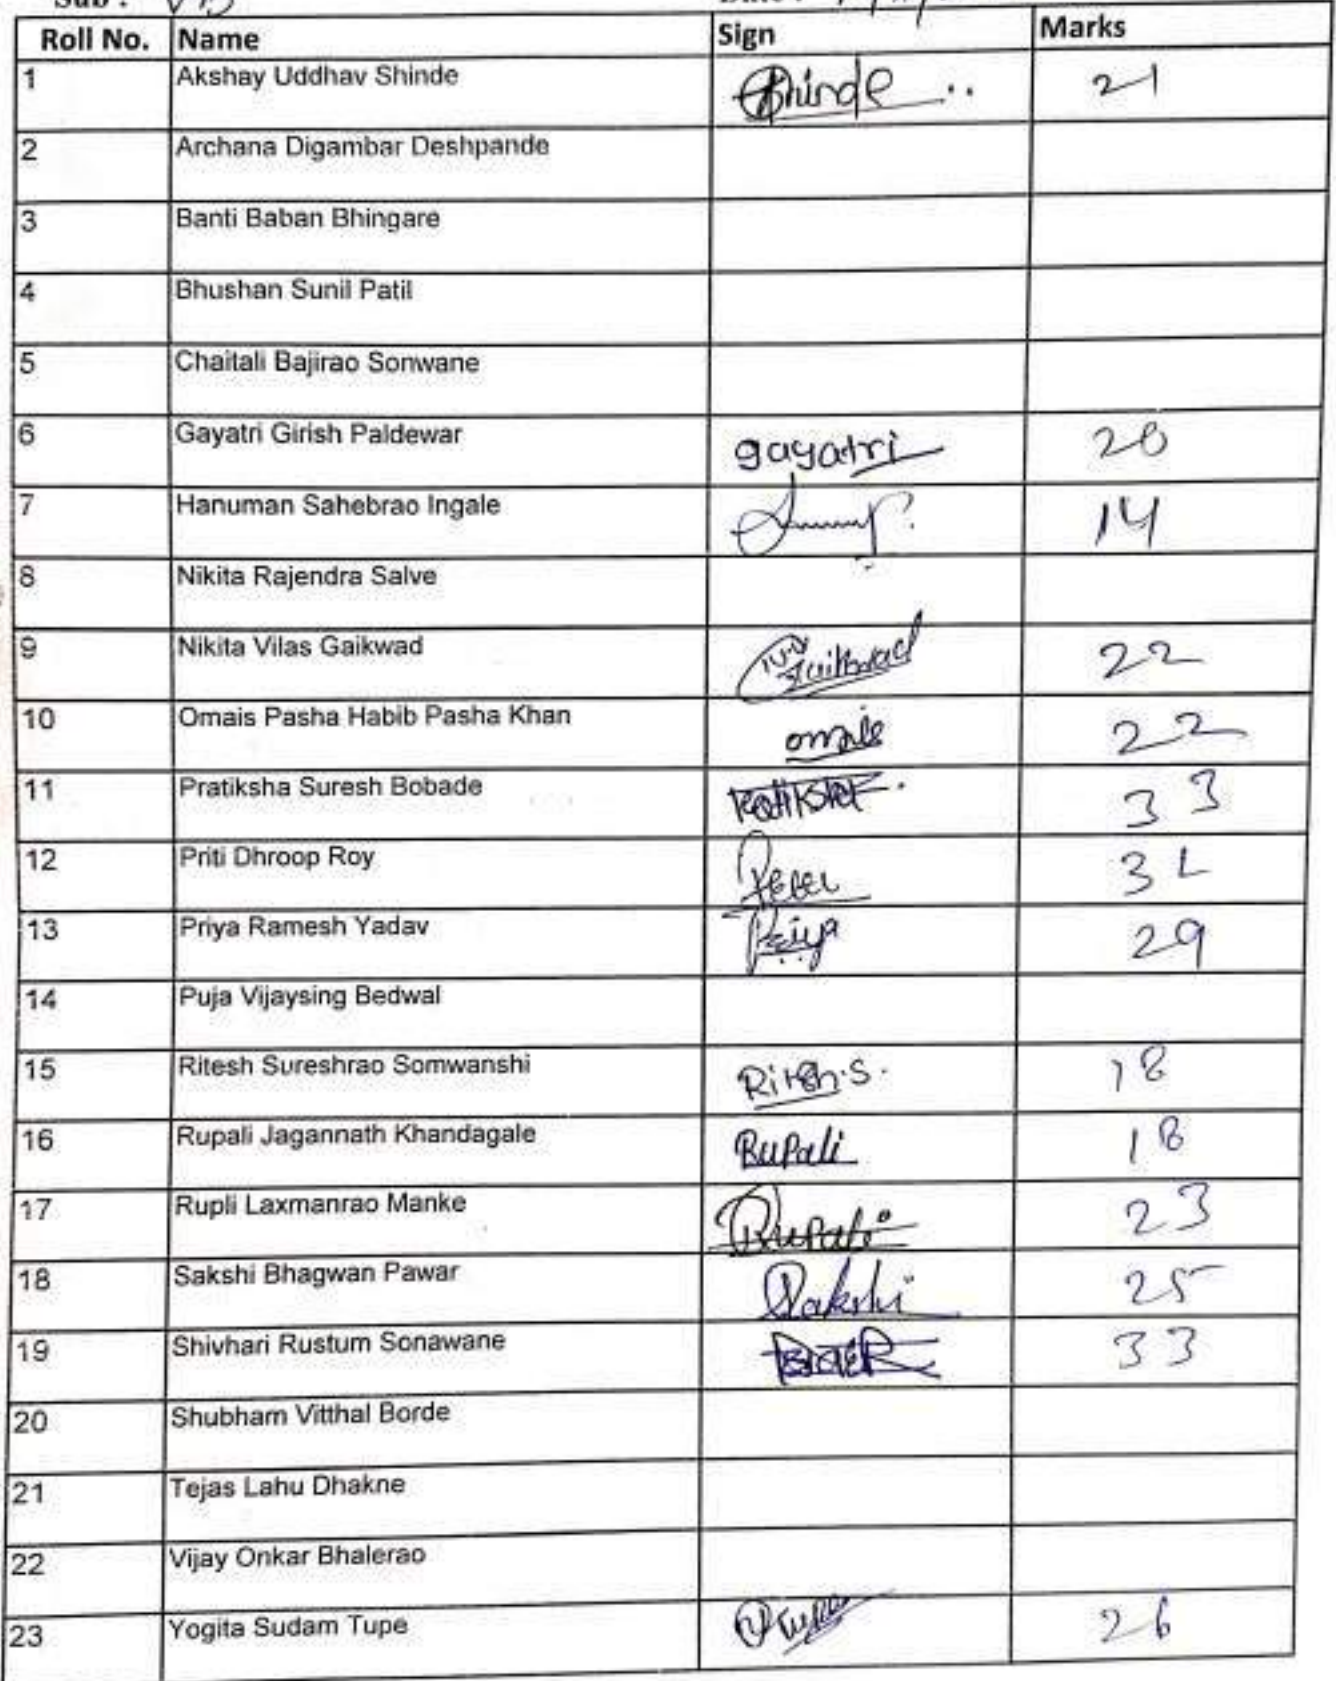 Sub : VB
Roll No. Name Sign Marks
1 Akshay Uddhav Shinde Shinde .. 21
2 Archana Digambar Deshpande
3 Banti Baban Bhingare
4 Bhushan Sunil Patil
5 Chaitali Bajirao Sonwane
6 Gayatri Girish Paldewar gayatri 20
7 Hanuman Sahebrao Ingale 14
8 Nikita Rajendra Salve
9 Nikita Vilas Gaikwad Gaikwad 22
10 Omais Pasha Habib Pasha Khan omais 22
11 Pratiksha Suresh Bobade 33
12 Priti Dhroop Roy
13 Priya Ramesh Yadav Priya 29
14 Puja Vijaysing Bedwal
15 Ritesh Sureshrao Somwanshi Ritesh.S. 18
16 Rupali Jagannath Khandagale Rupali 18
17 Rupli Laxmanrao Manke Rupali 23
18 Sakshi Bhagwan Pawar Sakshi 25
19 Shivhari Rustum Sonawane 33
20 Shubham Vitthal Borde
21 Tejas Lahu Dhakne
22 Vijay Onkar Bhalerao
23 Yogita Sudam Tupe 26